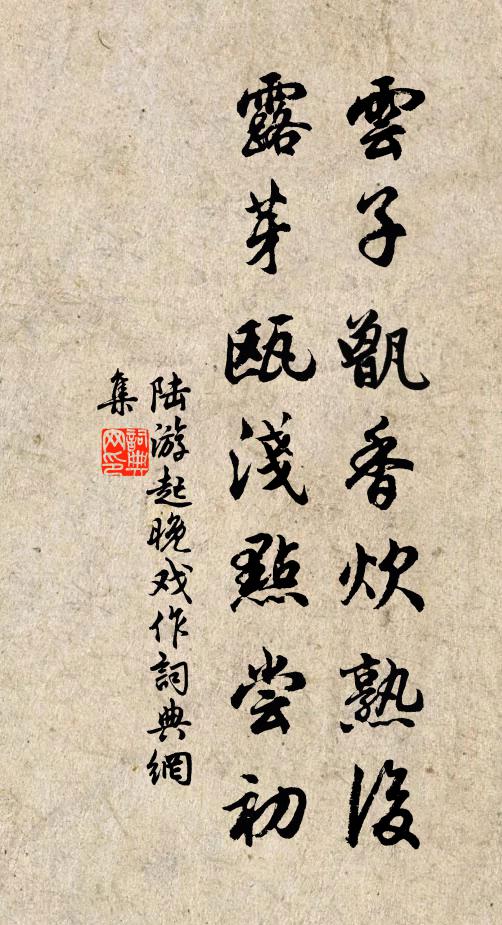 雲子甑香炊熟後
露芽甌淺點尝初
陆游起晚戏作詞典網
集
詞典网印